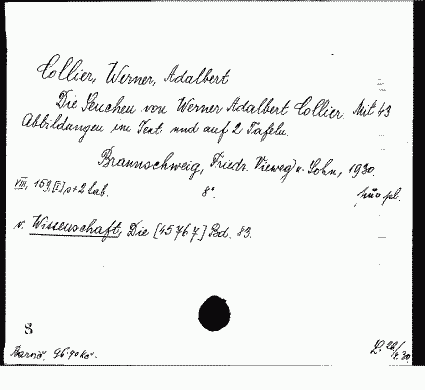 Collier, Werner, Adalbert
Die Seuchen von Werner Adalbert Collier. Mit 43
Abbildungen im Text und auf 2 Tafeln.
Braunschweig, Friedr. Vieweg u. Sohn, 1930.
VIII, 159, [I] s + 2 tab. 8°. pl.
v. Wissenschaft, Die [45767] Bd. 83.
S
96.90 Kč.